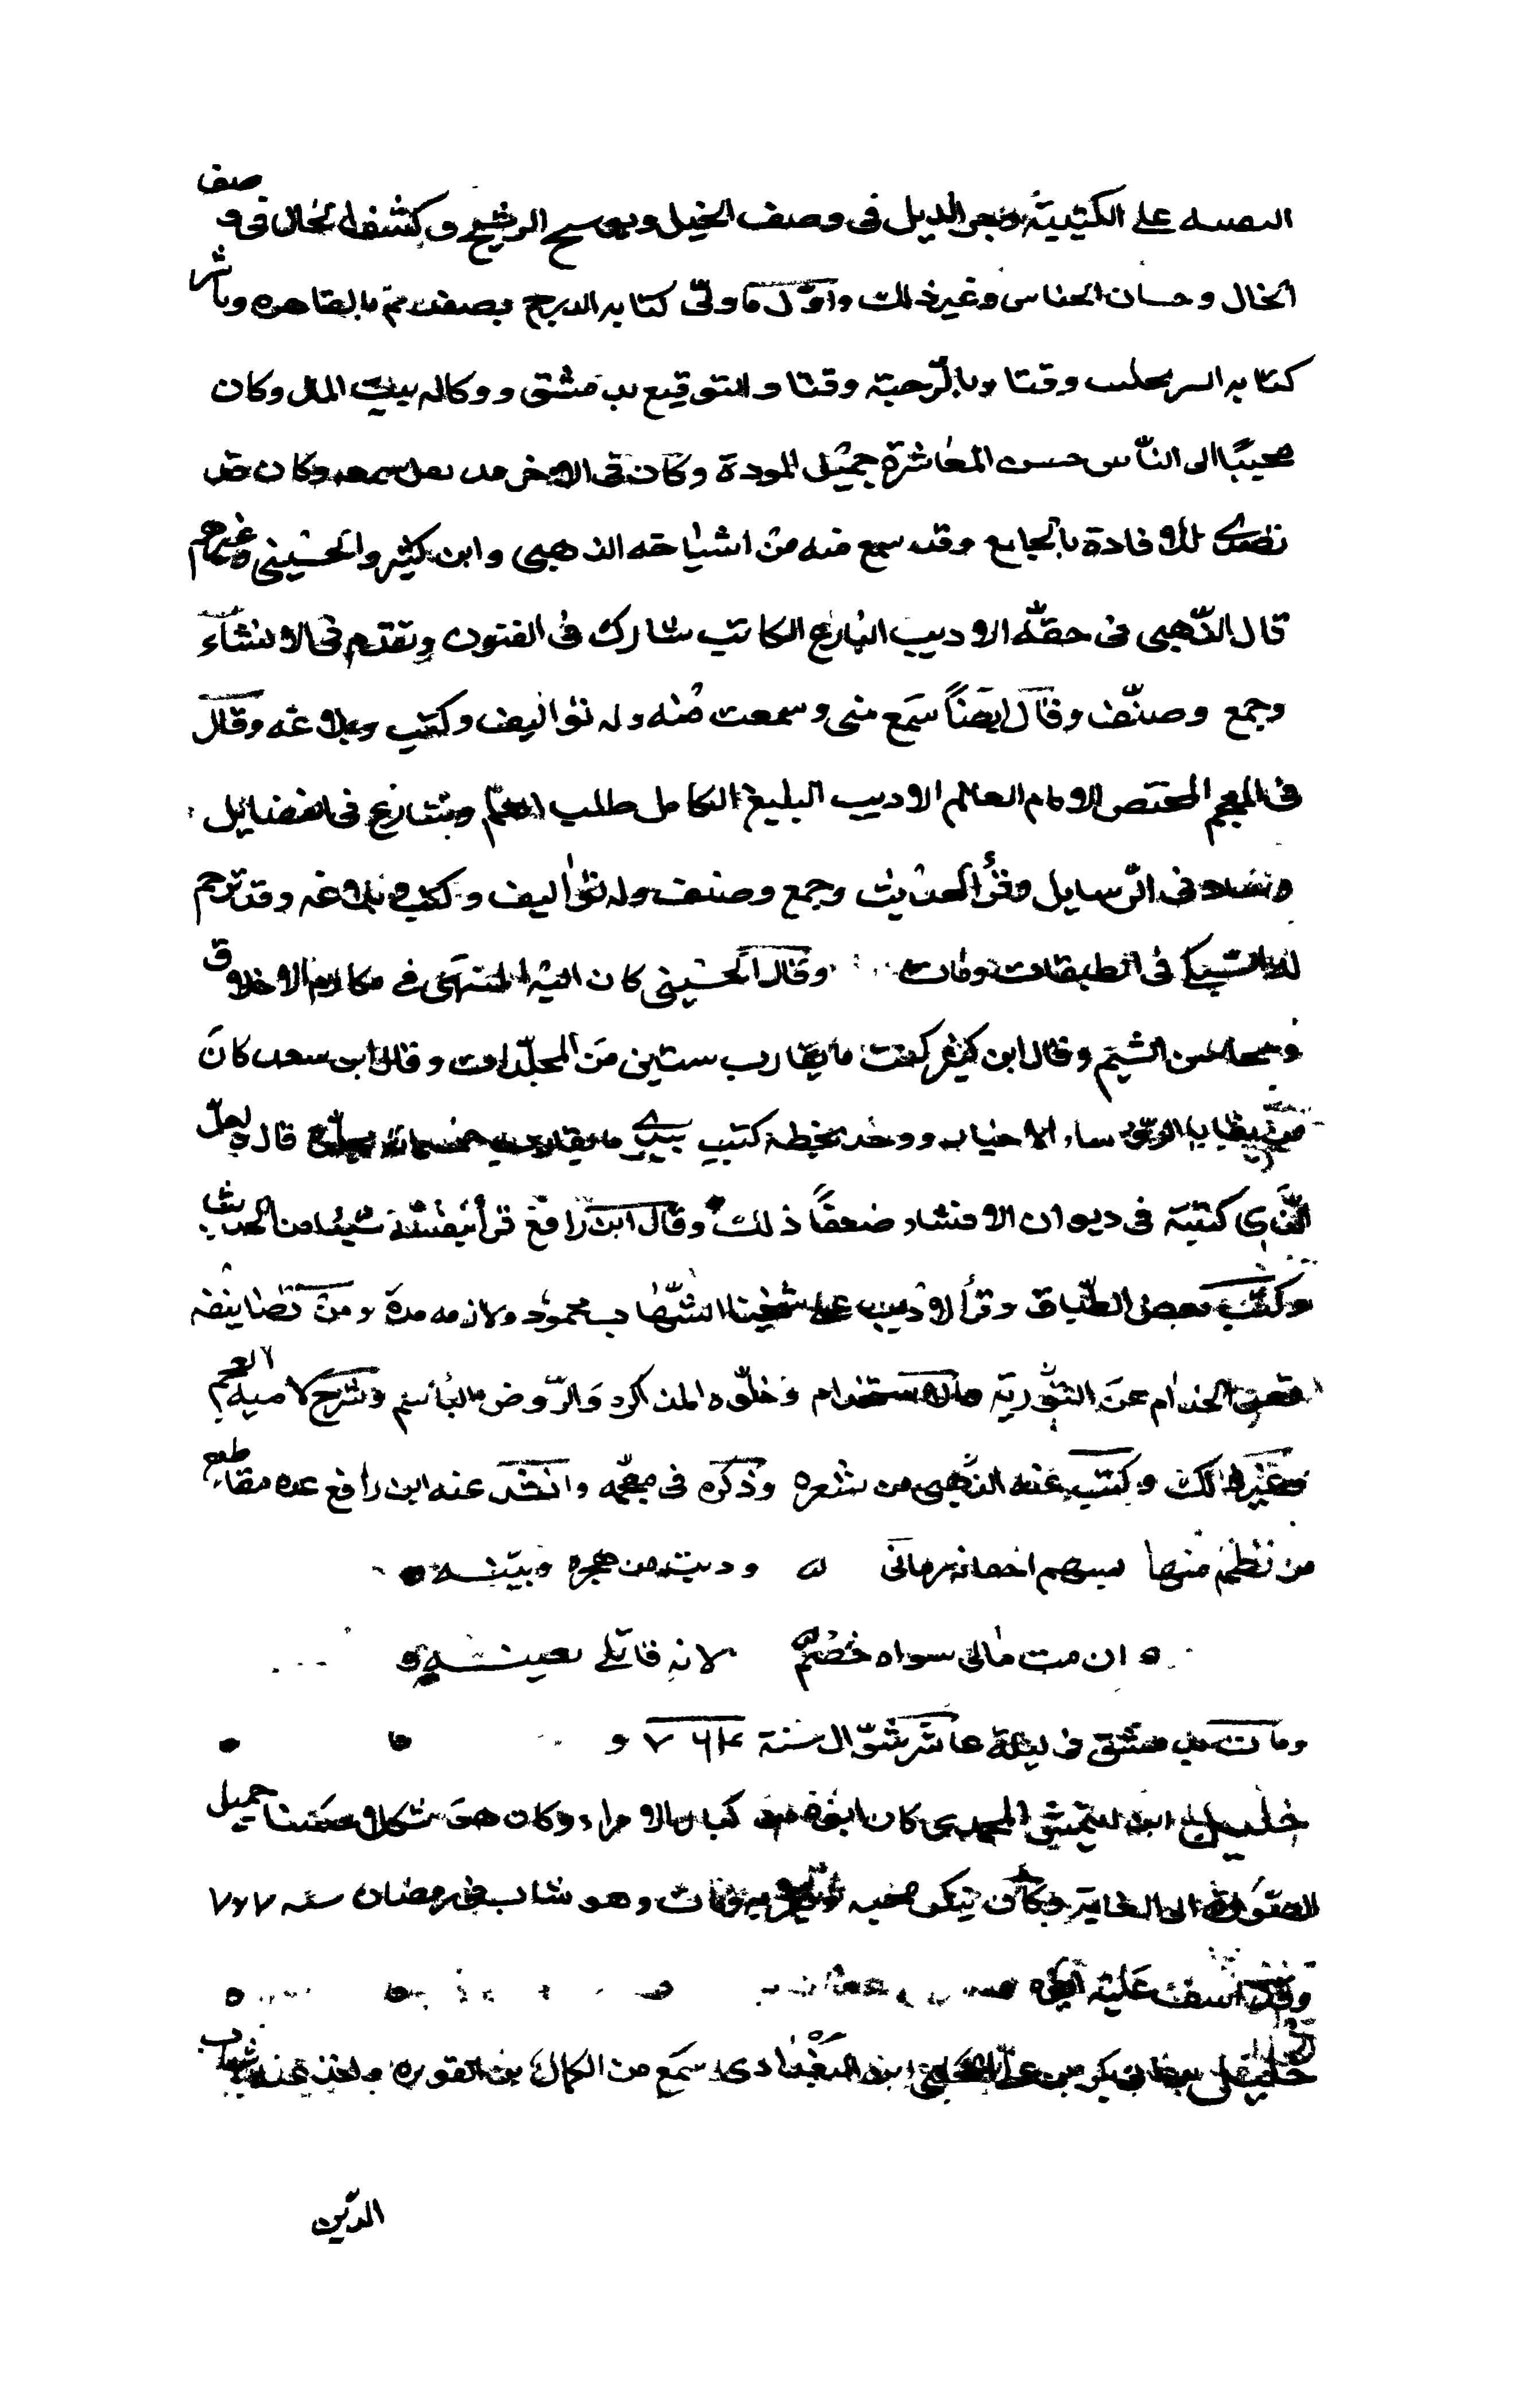 على الكتيبة وجر الذيل فى وصف الخيل وتوسيح الترشيح وكشف الحال فى وصف
الخال وجنان الجناس وغير ذلك واول ما ولى كتابه الدرج بصفد ثم بالقاهره وباشر
كتابه السر بحلب وقتا وبالرحبة وقتا والتوقيع بدمشق ووكاله بيت المال وكان
محببًا الى النّاس حسن المعاشرة جميل المودة وكان فى الاخر قد ثقل سمعه وكان قد
تصدى للافادة بالجامع وقد سمع منه من اشياخه الذهبى وابن كثير والحسينى وغيرهم
قال الذّهبى فى حقه الاديب البارع الكاتب شارك فى الفنون وتقدم فى الانشاء
وجمع وصنّف وقال ايضاً سمع منى وسمعت منه وله تواليف وكتب وبلاغه وقال
فى المعجم المختص الامام العالم الاديب البليغ الكامل طلب العلم وشارك فى الفضايل
وساد فى الرسايل وقرأ الحديث وجمع وصنف وله تواليف وكتب وبلاغه وقد ترجم
له السبكى فى الطبقات ومات وقال الحسينى كان اليه المنتهى فى مكارم الاخلاق
ومحاسن الشيم وقال ابن كثير كتب ما يقارب ستين من المجلّدات وقال ابن سعد كان
من بقايا الرؤساء الاخيار ووجد بخطه كتبت بيدى ما يقارب خمسمائة مجلد قال ولعل
الّذى كتبته فى ديوان الانشاء ضعفا ذلك وقال ابن رافع قرأ بنفسه شيئا من الحديث
وكتب بعض الطّباق وقرأ الادب على شيخنا الشّهاب محمود ولازمه مدة ومن تصانيفه
فض الختام عن التّورية والاستخدام وخلوه المذاكره والرّوض الباسم وشرح لامية العجم
وغير ذلك وكتب عنه الذهبى من شعره وذكره فى معجمه وانشد عنه ابن رافع عده مقاطيع
من نظمه منها بسهم اجفانه رمانى ه وذبت من هجره وبينه ه
ه ان مت مالى سواه خصم لانه قاتلى بعينه ه
ومات بدمشق فى ليلة عاشر شوّال سنة ٧٦٤ ه
خليل ابن المحمدى كان ابوه من كبار الامرا وكان هو شكلا حسنا جميل
الصورة الى الغاية وكان مات وهو شاب فى رمضان سنه ٧٦٧
وقد اسف عليه ابوه
خليل بن ابى بكر بن على ابن البغدادى سمع من الكمال بن القويره واخذ عنه شهاب
الدّين